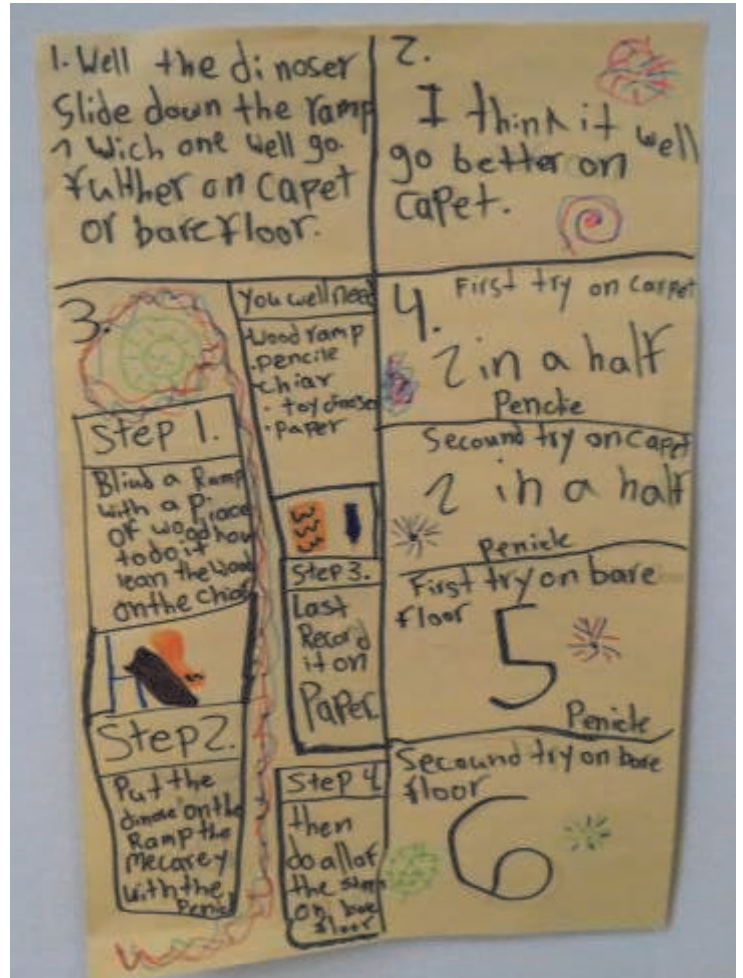 1. Well the dinoser
Slide down the ramp
1 Wich one well go
futher on capet
or bare floor.
2.
I think it well
go better on
capet.
3.
Step 1.
Blind a Ramp
with a Piace
of wood how
to do it
lean the wood
on the chiar
Step 2.
Put the
on the
Ramp the
mecarey
with the
Penicl
You well need
Wood ramp
. pencile
chiar
. toy dinoser
. paper
Step 3.
Last
Record
it on
Paper.
Step 4
then
do all of
the
on bare
floor
4.
First try on carpet
2 in a half
Pencile
Secound try on capet
2 in a half
Penicle
First try on bare
floor
5
Penicle
Secound try on bare
floor
6